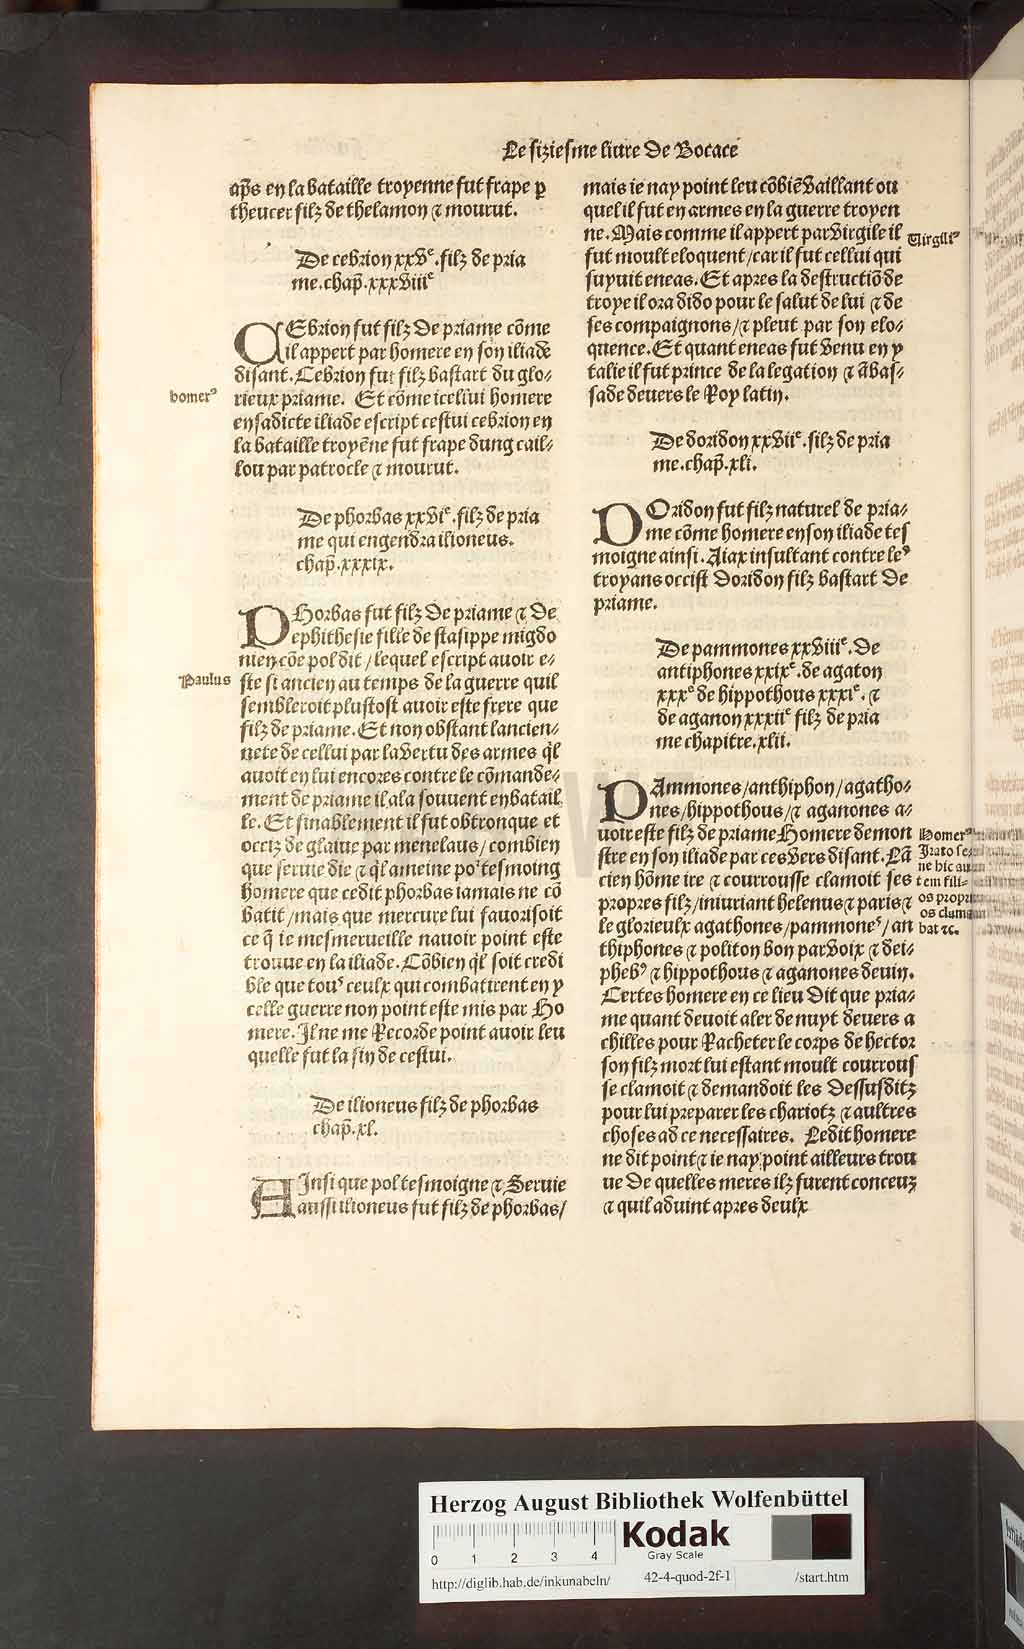 Le siziesme liure de Bocace
ap̃s en la bataille troyenne fut frape ꝑ
theucer filz de thelamon ⁊ mourut.
De cebrion xxvᵉ. filz de pria
me. chap̃. xxxviiiᵉ
CEbrion fut filz de priame cõme
il appert par homere en son iliade
disant. Cebrion fut filz bastart du glo⸗
rieux priame. Et cõme icellui homere
en sa dicte iliade escript cestui cebrion en
la bataille troyẽne fut frape dung cail⸗
lou par patrocle ⁊ mourut.
homerꝰ
De phorbas xxviᵉ. filz de pria
me qui engendra ilioneus.
chap̃. xxxix.
PHorbas fut filz de priame ⁊ de
ephithesie fille de stasippe migdo
nien cõe pol dit / lequel escript auoir e⸗
ste si ancien au temps de la guerre quil
sembleroit plustost auoir este frere que
filz de priame. Et non obstant lancien⸗
nete de cellui par la vertu des armes q̃l
auoit en lui encores contre le cõmande⸗
ment de priame il ala souuent en batail
le. Et finablement il fut obtronque et
occiz de glaiue par menelaus / combien
que seruie die ⁊ q̃l ameine po² tesmoing
homere que cedit phorbas iamais ne cõ
batit / mais que mercure lui fauorisoit
ce q̃ ie mesmerueille nauoir point este
trouue en la iliade. Cõbien q̃l soit credi
ble que touˢ ceulx qui combatirent en y
celle guerre non point este mis par Ho
mere. Il ne me Recorde point auoir leu
quelle fut la fin de cestui.
Paulus
De ilioneus filz de phorbas
chap̃. xl.
AInsi que pol tesmoigne ⁊ Seruie
aussi ilioneus fut filz de phorbas /
mais ie nay point leu cõbiẽ vaillant ou
quel il fut en armes en la guerre troyen
ne. Mais comme il appert par virgile il
fut moult eloquent / car il fut cellui qui
suyuit eneas. Et apres la destructiõ de
troye il ora dido pour le salut de lui ⁊ de
ses compaignons / ⁊ pleut par son elo⸗
quence. Et quant eneas fut venu en y
talie il fut prince de la legation ⁊ ãbas⸗
sade deuers le Roy latin.
Virgiliꝰ
De doridon xxviiᵉ. filz de pria
me. chap̃. xli.
DOridon fut filz naturel de pria⸗
me cõme homere en son iliade tes
moigne ainsi. Aiax insultant contre leˢ
troyans occist Doridon filz bastart de
priame.
De pammones xxviiiᵉ. de
antiphones xxixᵉ. de agaton
xxxᵉ de hippothous xxxiᵉ. ⁊
de aganon xxxiiᵉ filz de pria
me chapitre. xlii.
PAmmones / anthiphon / agatho⸗
nes / hippothous / ⁊ aganones a⸗
uoir este filz de priame Homere demon
stre en son iliade par ces vers disant. Lã
cien hõme ire ⁊ courrousse clamoit ses
propres filz / iniuriant helenus ⁊ paris ⁊
le glorieulx agathones / pammoneˢ / an
thiphones ⁊ politon bon par voix ⁊ dei⸗
phebꝰ ⁊ hippothous ⁊ aganones deuin.
Certes homere en ce lieu dit que pria⸗
me quant deuoit aler de nuyt deuers a
chilles pour Racheter le corps de hector
son filz mort lui estant moult courrous
se clamoit ⁊ demandoit les dessusditz
pour lui preparer les chariotz ⁊ aultres
choses ad ce necessaires. Ledit homere
ne dit point ⁊ ie nay point ailleurs trou
ue de quelles meres ilz furent conceuz
⁊ quil aduint apres deulx
Homerꝰ
Irato se⸗
ne hic au
tem fili⸗
os propri
os clama
bat ⁊c.
Herzog August Bibliothek Wolfenbüttel
0 1 2 3 4
Kodak
Gray Scale
http://diglib.hab.de/inkunabeln/ 42-4-quod-2f-1 /start.htm